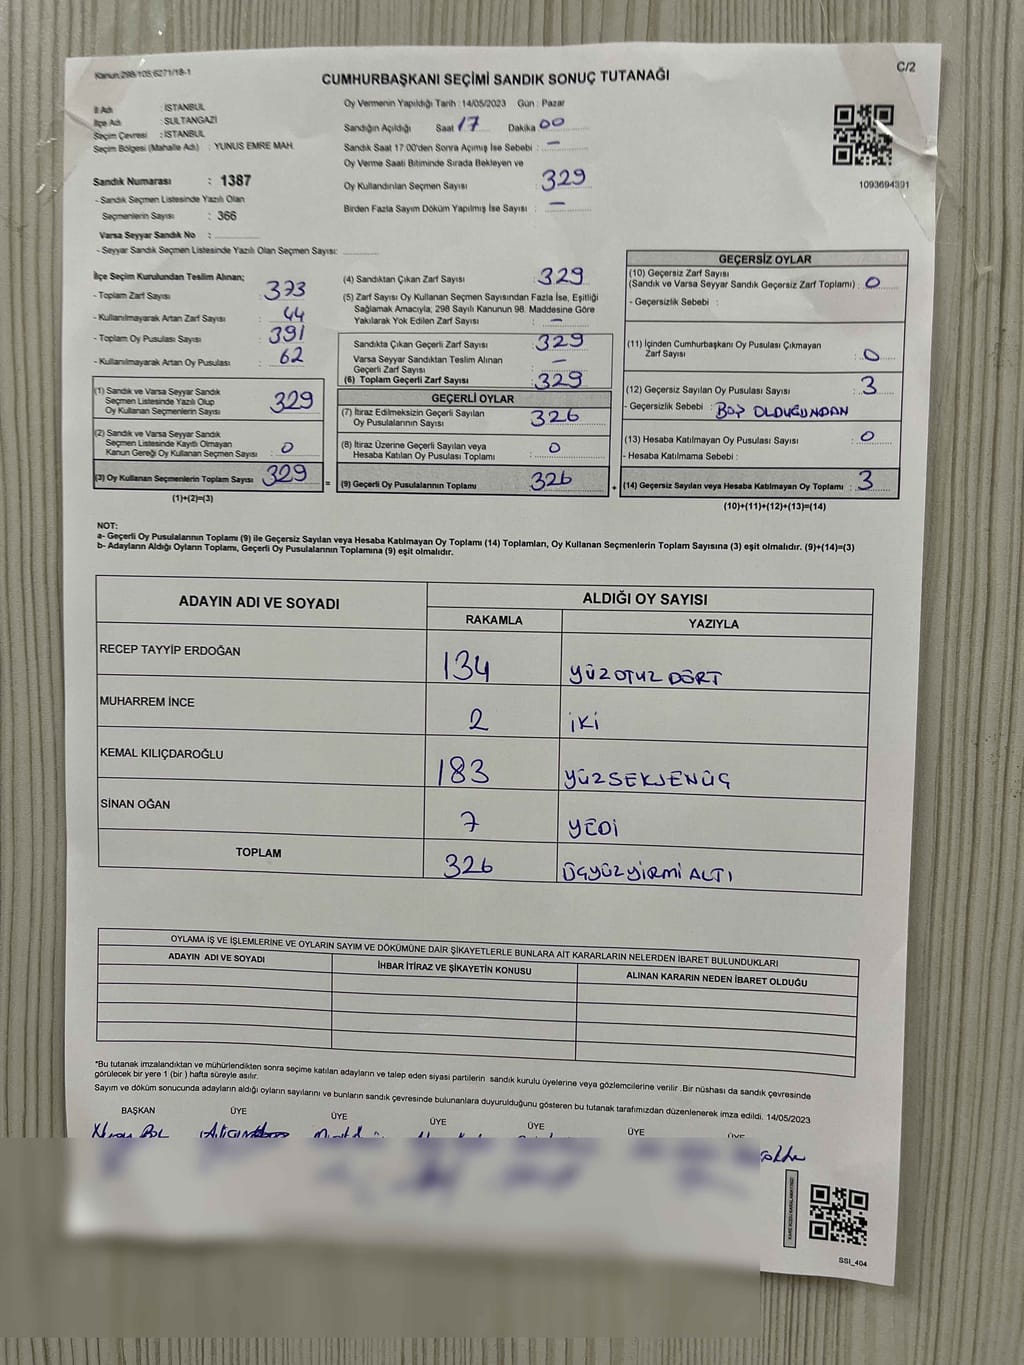 Kanun:298/105;6271/18-1
C/2
CUMHURBAŞKANI SEÇİMİ SANDIK SONUÇ TUTANAĞI
İl Adı : İSTANBUL
İlçe Adı : SULTANGAZİ
Seçim Çevresi : İSTANBUL
Seçim Bölgesi (Mahalle Adı) : YUNUS EMRE MAH.
Sandık Numarası : 1387
- Sandık Seçmen Listesinde Yazılı Olan
Seçmenlerin Sayısı : 366
Varsa Seyyar Sandık No :
- Seyyar Sandık Seçmen Listesinde Yazılı Olan Seçmen Sayısı:
Oy Vermenin Yapıldığı Tarih : 14/05/2023 Gün : Pazar
Sandığın Açıldığı Saat 17 Dakika 00
Sandık Saat 17.00'den Sonra Açımış İse Sebebi : -
Oy Verme Saati Bitiminde Sırada Bekleyen ve
Oy Kullandırılan Seçmen Sayısı : 329
Birden Fazla Sayım Döküm Yapılmış İse Sayısı : -
1093694391
İlçe Seçim Kurulundan Teslim Alınan;
- Toplam Zarf Sayısı : 373
- Kullanılmayarak Artan Zarf Sayısı : 44
- Toplam Oy Pusulası Sayısı : 391
- Kullanılmayarak Artan Oy Pusulası : 62
(1) Sandık ve Varsa Seyyar Sandık
Seçmen Listesinde Yazılı Olup
Oy Kullanan Seçmenlerin Sayısı : 329
(2) Sandık ve Varsa Seyyar Sandık
Seçmen Listesinde Kayıtlı Olmayan
Kanun Gereği Oy Kullanan Seçmen Sayısı : 0
(3) Oy Kullanan Seçmenlerin Toplam Sayısı : 329
(1)+(2)=(3)
(4) Sandıktan Çıkan Zarf Sayısı : 329
(5) Zarf Sayısı Oy Kullanan Seçmen Sayısından Fazla İse, Eşitliği
Sağlamak Amacıyla; 298 Sayılı Kanunun 98. Maddesine Göre
Yakılarak Yok Edilen Zarf Sayısı : -
Sandıkta Çıkan Geçerli Zarf Sayısı : 329
Varsa Seyyar Sandıktan Teslim Alınan
Geçerli Zarf Sayısı : -
(6) Toplam Geçerli Zarf Sayısı : 329
GEÇERLİ OYLAR
(7) İtiraz Edilmeksizin Geçerli Sayılan
Oy Pusulalarının Sayısı : 326
(8) İtiraz Üzerine Geçerli Sayılan veya
Hesaba Katılan Oy Pusulası Toplamı : 0
= (9) Geçerli Oy Pusulalarının Toplamı : 326
GEÇERSİZ OYLAR
(10) Geçersiz Zarf Sayısı
(Sandık ve Varsa Seyyar Sandık Geçersiz Zarf Toplamı) : 0
- Geçersizlik Sebebi :
(11) İçinden Cumhurbaşkanı Oy Pusulası Çıkmayan
Zarf Sayısı : 0
(12) Geçersiz Sayılan Oy Pusulası Sayısı : 3
- Geçersizlik Sebebi : BOŞ OLDUĞUNDAN
(13) Hesaba Katılmayan Oy Pusulası Sayısı : 0
- Hesaba Katılmama Sebebi :
+ (14) Geçersiz Sayılan veya Hesaba Katılmayan Oy Toplamı : 3
(10)+(11)+(12)+(13)=(14)
NOT:
a- Geçerli Oy Pusulalarının Toplamı (9) ile Geçersiz Sayılan veya Hesaba Katılmayan Oy Toplamı (14) Toplamları, Oy Kullanan Seçmenlerin Toplam Sayısına (3) eşit olmalıdır. (9)+(14)=(3)
b- Adayların Aldığı Oyların Toplamı, Geçerli Oy Pusulalarının Toplamına (9) eşit olmalıdır.
ADAYIN ADI VE SOYADI
ALDIĞI OY SAYISI
RAKAMLA YAZIYLA
RECEP TAYYİP ERDOĞAN 134 YÜZOTUZ DÖRT
MUHARREM İNCE 2 İKİ
KEMAL KILIÇDAROĞLU 183 YÜZSEKSENÜÇ
SİNAN OĞAN 7 YEDİ
TOPLAM 326 ÜÇYÜZYİRMİ ALTI
OYLAMA İŞ VE İŞLEMLERİNE VE OYLARIN SAYIM VE DÖKÜMÜNE DAİR ŞİKAYETLERLE BUNLARA AİT KARARLARIN NELERDEN İBARET BULUNDUKLARI
ADAYIN ADI VE SOYADI İHBAR İTİRAZ VE ŞİKAYETİN KONUSU ALINAN KARARIN NEDEN İBARET OLDUĞU
*Bu tutanak imzalandıktan ve mühürlendikten sonra seçime katılan adayların ve talep eden siyasi partilerin sandık kurulu üyelerine veya gözlemcilerine verilir .Bir nüshası da sandık çevresinde
görülecek bir yere 1 (bir ) hafta süreyle asılır.
Sayım ve döküm sonucunda adayların aldığı oyların sayılarını ve bunların sandık çevresinde bulunanlara duyurulduğunu gösteren bu tutanak tarafımızdan düzenlenerek imza edildi. 14/05/2023
BAŞKAN ÜYE ÜYE ÜYE ÜYE ÜYE ÜYE
SSI_404